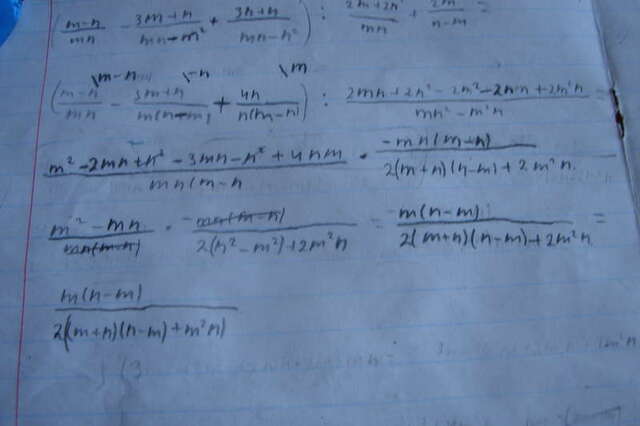 (m-n/mn - 3m+n/mn-m² + 3n+n/mn-n²) : 2m+2n/mn + 2m/n-m =
\m-n \-n \m
(m-n/mn - 3m+n/m(n-m) + 4n/n(m-n)) : 2mn+2n²-2m²-2mn+2m²n/mn²-m²n =
m²-2mn+n²-3mn-n²+4nm/mn(m-n · -mn(m-n)/2(m+n)(n-m)+2m²n
m²-mn/mn(m-n) · -mn(m-n)/2(n²-m²)+2m²n = -m(n-m)/2(m+n)(n-m)+2m²n =
m(n-m)/2((m+n)(n-m)+m²n)